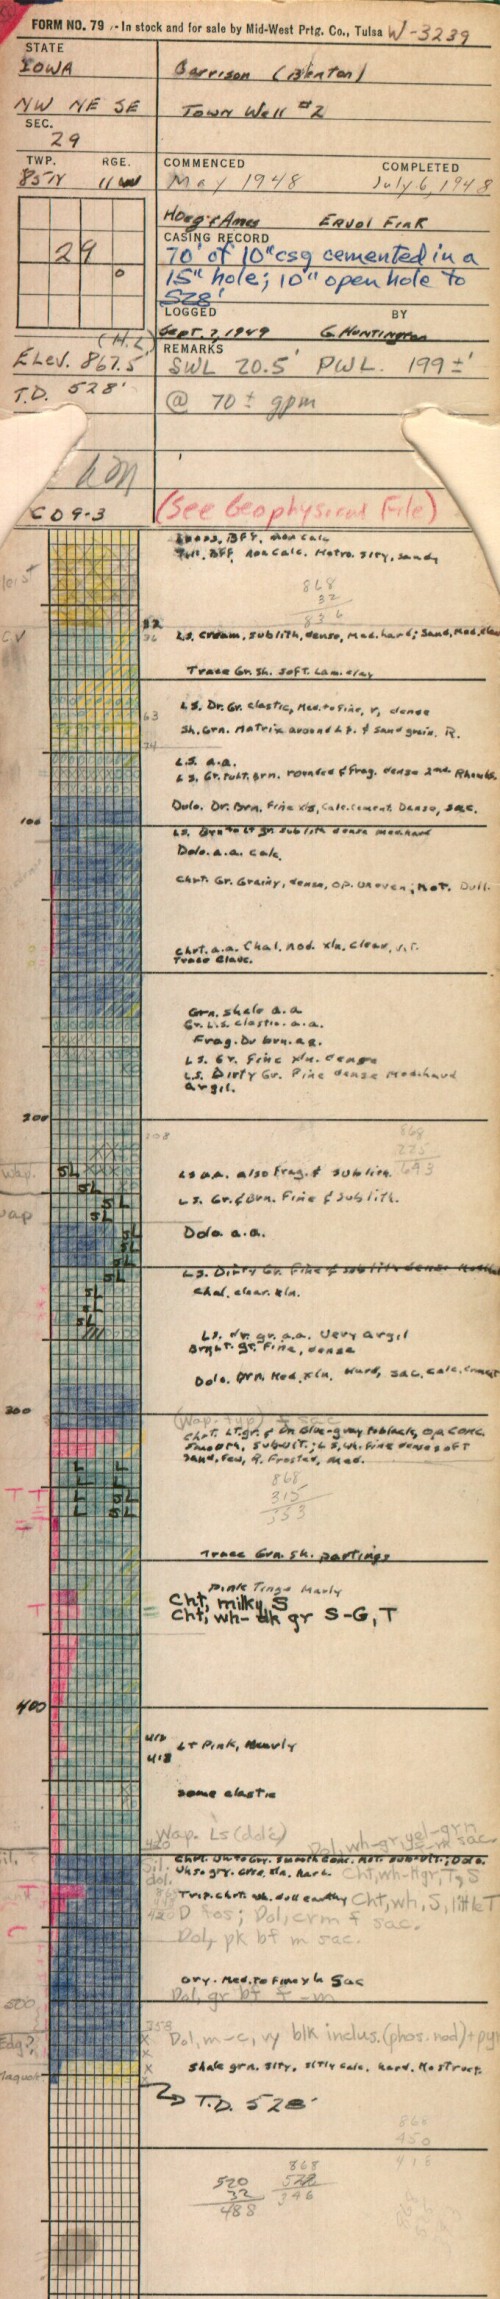 FORM NO. 79 - In stock and for sale by Mid-West Prtg. Co., Tulsa W-3239
STATE
IOWA
Garrison (Benton)
NW NE SE
Town Well #2
SEC.
29
TWP. RGE.
85N 11W
COMMENCED COMPLETED
May 1948 July 6, 1948
29
Hoeg & Ames Ervol Fink
CASING RECORD
70' of 10" csg cemented in a
15" hole; 10" open hole to
528'
LOGGED BY
Sept. 7, 1949 G. Huntington
(H.L.)
ELEV. 867.5'
T.D. 528'
REMARKS
SWL 20.5' PWL. 199±'
@ 70± gpm
CD9-3
(See Geophysical File)
Loess, BFF, non calc
Till, BFF, non calc. Hetro. Slty, sandy
868
32
836
32
36
Ls. cream, sublith, dense, Med. hard; Sand, Med.
Trace Gr. Sh. Soft. Lam. clay
63
Ls. Dr. Gr. clastic, Med. to Fine, v, dense
Sh. Grn. Matrix around Ls. & Sand grain. R.
74
L.S. a.a.
rounded & Frag. dense 2nd Rhomb.
Dolo. Dr. Brn. Fine xls, Calc. cement Dense, sac.
100
Ls. Brn to Lt gr sublith dense med. hard
Dolo. a.a. calc.
Chrt. Gr. Grainy, dense, op. Uneven; Mot. Dull.
Chrt. a.a. Chal. Mod. xln. Clear,
Trace Glauc.
Grn. Shale a.a
Gr. L.S. clastic. a.a.
Frag. Dr brn. a.a.
Ls. Gr. Fine xln. dense
L.S. Dirty Gr. Fine dense Med. hard
Argil.
200
208
868
225
643
Wap.
SL
Ls a.a. also Frag. & Sublith
SL
Ls. Gr. & Brn. Fine & Sublith.
SL
SL
Wap
SL
Dolo a.a.
SL
SL
SL
Ls. Dirty Gr. Fine & sublith dense
SL
Chal. clear. xln.
SL
SL
Ls. dr. gr. a.a. Very Argil
Brn, Lt. gr. Fine, dense
Dolo. Brn, Med. xln, Hard, sac, calc. cement
300
(Wap. typ) f sac
Chrt. Lt. gr. & Dr. Blue-gray to black, op. conc.
Smooth, Subvit.; LS, wh. Fine dense soft
Sand, Few, R. Frosted, Med.
L L
868
315
553
T T
L SL
L SL
Trace Grn. Sh. partings
Pink Tinge Marly
T
Cht, milky, S
Cht, wh-dk gr S-G, T
400
412
418
Lt Pink, Marly
some clastic
Wap. Ls (dolc)
Dol, wh-gr yel-grn
450
Sil.
Sil. dol.
Cht, wh-ltgr, T, S
Trip. chrt. wh. dull earthy Cht, wh, S, little T
D fos; Dol, crm f sac.
Dol, pk bf m sac.
Gry. Med. to Fine xls Sac
500
Dol, gr bf f-m
353
Edg?
X Dol, m-c, vy blk inclus. (phos. nod) + pyr
Maquok
X Shale grn. slty, sltly calc. hard. No struct.
X
T.D. 528'
868
450
418
520
32
488
868
346